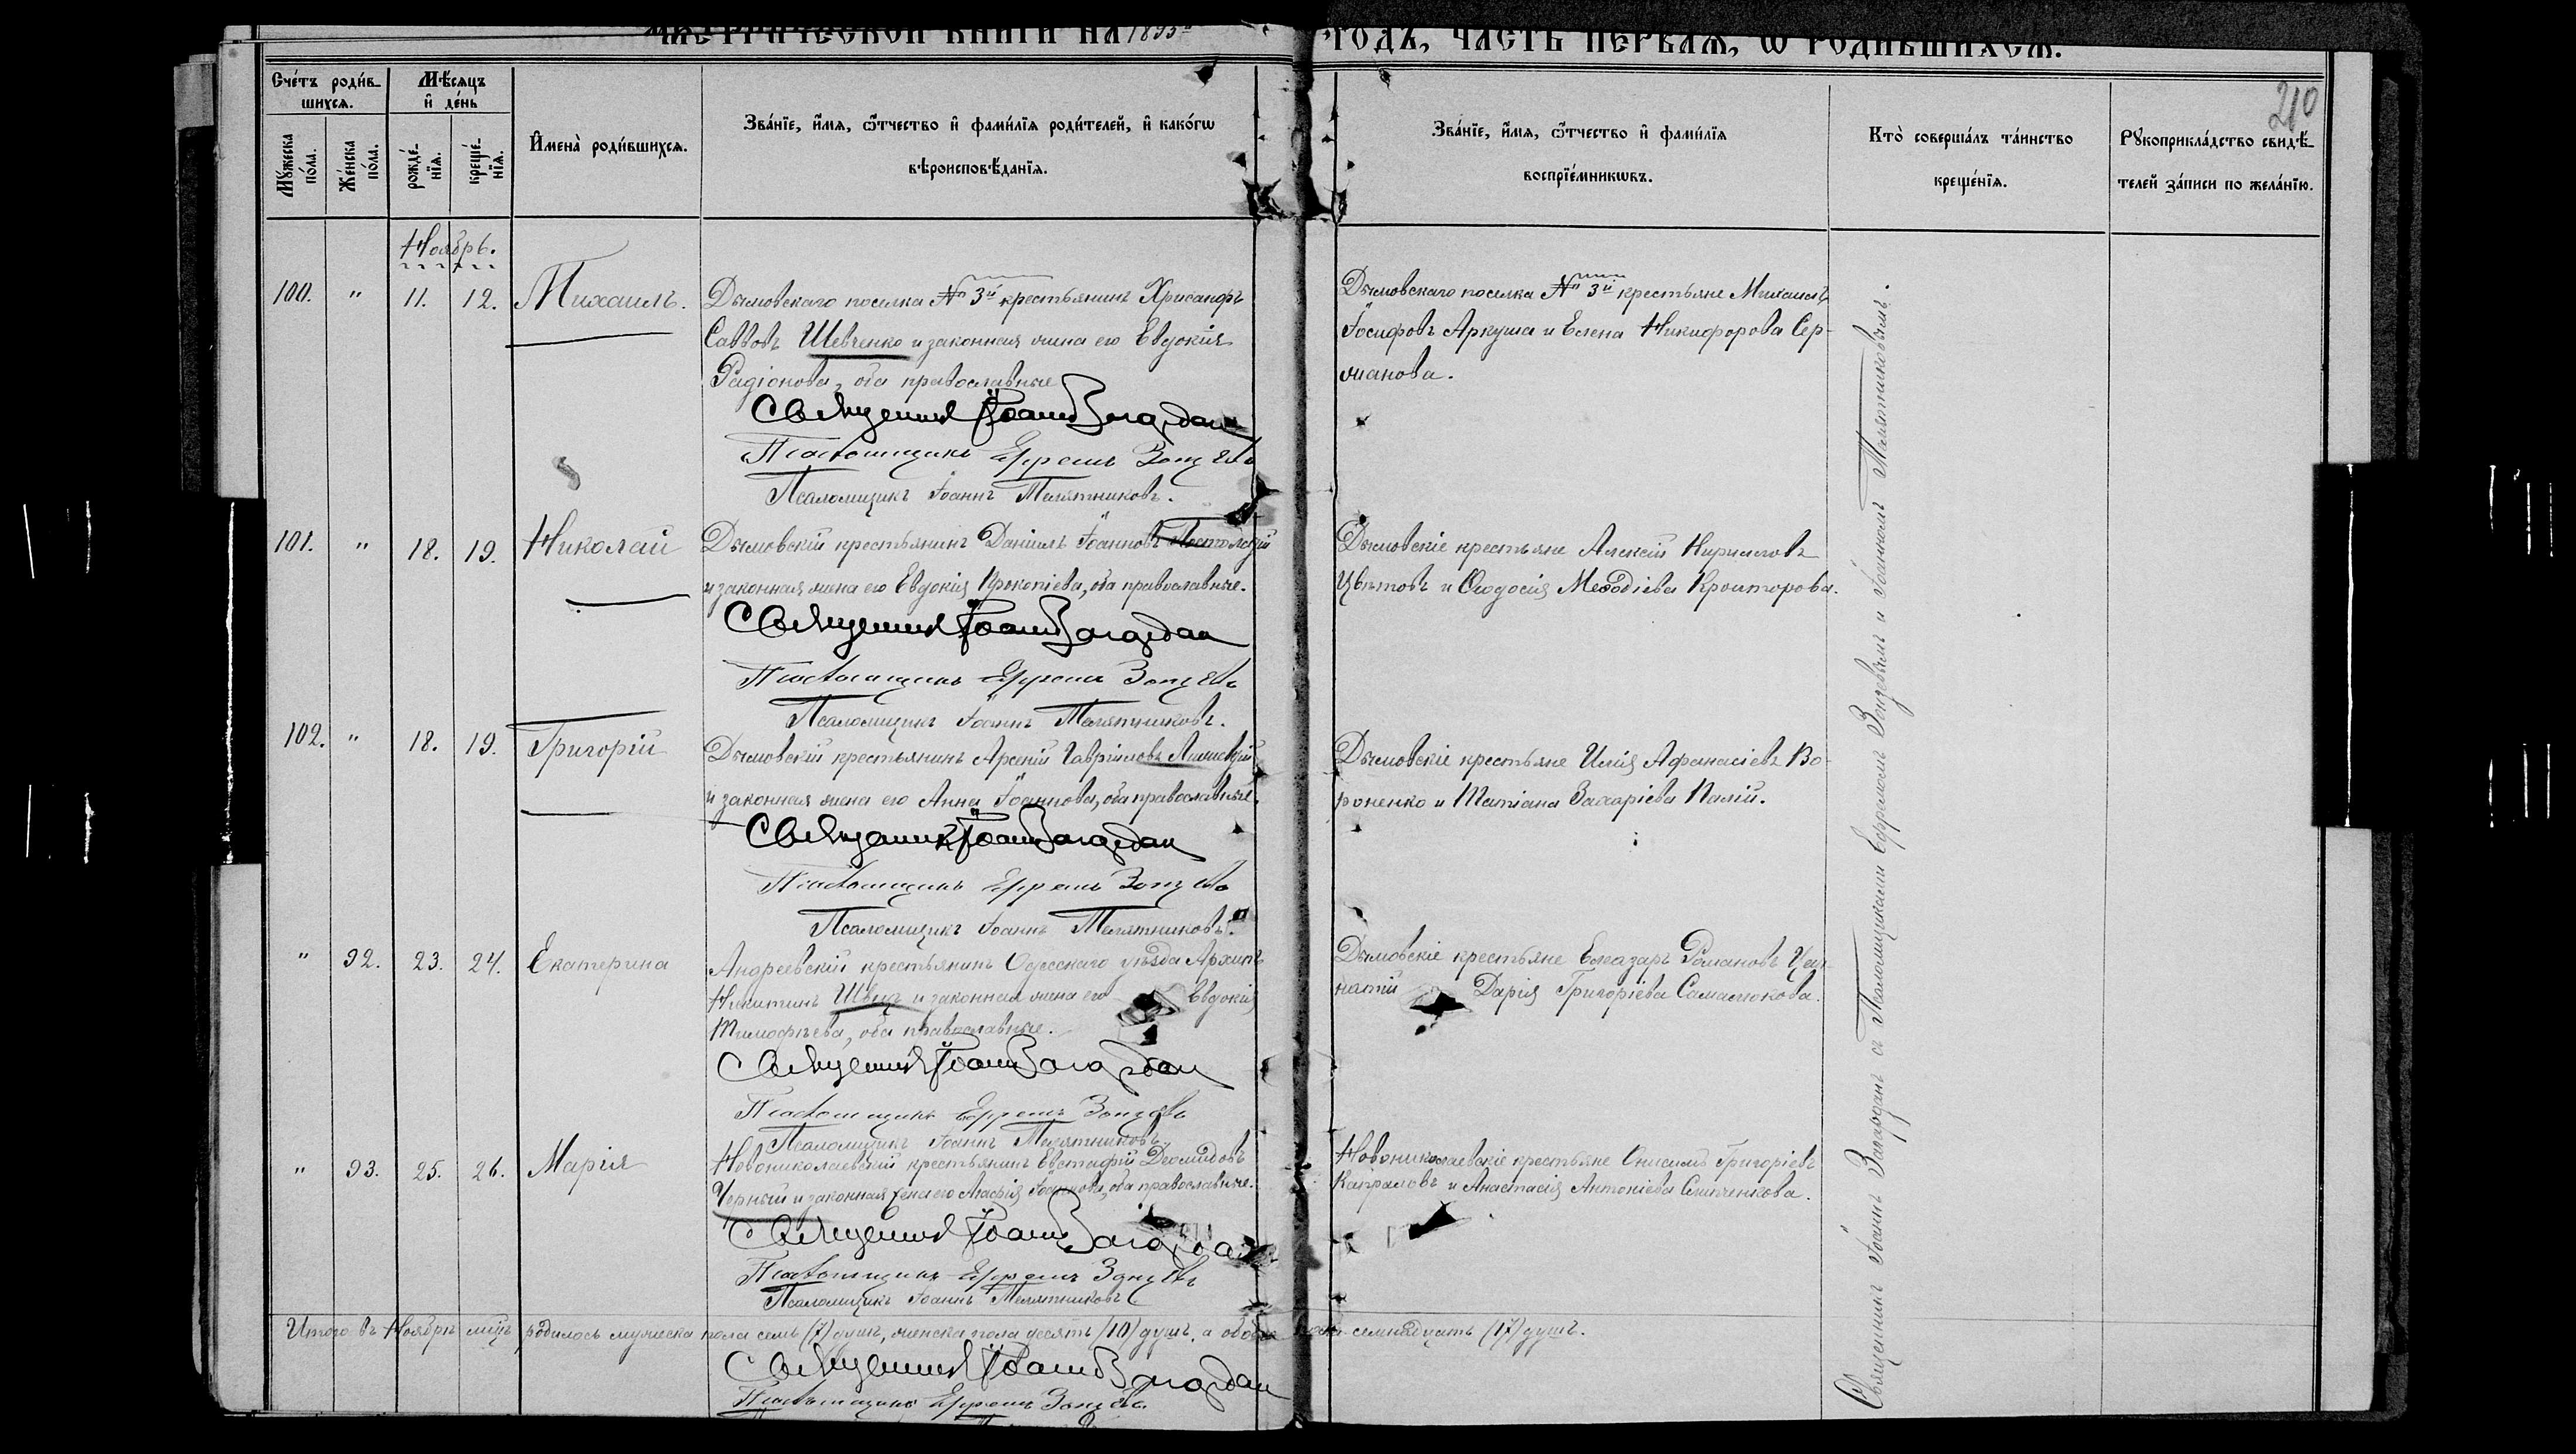 МЕТРИЧЕСКОЙ КНИГИ НА 1895й ГОДЪ, ЧАСТЬ ПЕРВАЯ, Ѡ РОДИВШИХСЯ.
210
Сче́тъ роди́в-
шихсѧ.
Мѣ́сѧцъ
и҆ де́нь
Му́жеска по́ла.
Же́нска по́ла.
рожде́-
нїѧ.
креще́-
нїѧ.
И҆мена̀ роди́вшихсѧ.
Зва́нїе, и҆́мѧ, ѿ́тчество и҆ фами́лїѧ роди́телей, и҆ како́гѡ
вѣроисповѣ́данїѧ.
Зва́нїе, и҆́мѧ, ѿ́тчество и҆ фами́лїѧ
воспрїе́мникѡвъ.
Кто̀ соверша́лъ та́инство
креще́нїѧ.
Рꙋкоприкла́дство свидѣ́-
телей за́писи по жела́нїю.
Ноябрь.
100. " 11. 12. Михаилъ.
Дымовскаго поселка № 3й крестьянинъ Хрисанфъ
Саввовъ Шевченко и законная жена его Евдокія
Радіонова, оба православные
Священникъ Іоаннъ Загордан
Псаломщикъ Ефремъ Зонцевъ
Псаломщикъ Іоаннъ Телятниковъ.
Дымовскаго поселка № 3й крестьяне Михаилъ
Іосифовъ Аркуша и Елена Никифорова Сер-
манова.
101. " 18. 19. Николай
Дымовскій крестьянинъ Даніилъ Іоанновъ
и законная жена его Евдокія Прокопіева, оба православные.
Священникъ Іоаннъ Загордан
Псаломщикъ Ефремъ Зонцевъ
Псаломщикъ Іоаннъ Телятниковъ.
Дымовскіе крестьяне Алексій Кирилловъ
Цвѣтовъ и Ѳеодосія Меѳодіева Кроиторова.
102. " 18. 19. Григорій
Дымовскій крестьянинъ Арсеній Гавріиловъ
и законная жена его Анна Іоаннова, оба православные.
Священникъ Іоаннъ Загордан
Псаломщикъ Ефремъ Зонцевъ
Псаломщикъ Іоаннъ Телятниковъ.
Дымовскіе крестьяне Илія Афанасіевъ Во-
роненко и Татіана Захаріева Палій.
" 92. 23. 24. Екатерина
Андреевскій крестьянинъ Одесскаго уѣзда Архипъ
Никитинъ Швецъ и законная жена его Евдокія
Тимофѣева, оба православные.
Священникъ Іоаннъ Загордан
Псаломщикъ Ефремъ Зонцевъ
Псаломщикъ Іоаннъ Телятниковъ.
Дымовскіе крестьяне Елеазаръ Романовъ
Дарія Григоріева Самалюкова.
" 93. 25. 26. Марія
Новониколаевскій крестьянинъ Евстафій Діомидовъ
Черный и законная жена его Агафія Іоаннова, оба православные.
Священникъ Іоаннъ Загордан
Псаломщикъ Ефремъ Зонцевъ
Псаломщикъ Іоаннъ Телятниковъ
Новониколаевскіе крестьяне Онисимъ Григоріевъ
Капраловъ и Анастасія Антоніева Слипченкова.
Итого въ Ноябрѣ мцѣ родилось мужеска пола семь (7) душъ, женска пола десять (10) душъ, а обоего пола семнадцать (17) душъ.
Священникъ Іоаннъ Загордан
Псаломщикъ Ефремъ Зонцевъ.
Священникъ Іоаннъ Загорданъ съ Псаломщиками Ефремомъ Зонцевымъ и Іоанномъ Телятниковымъ.